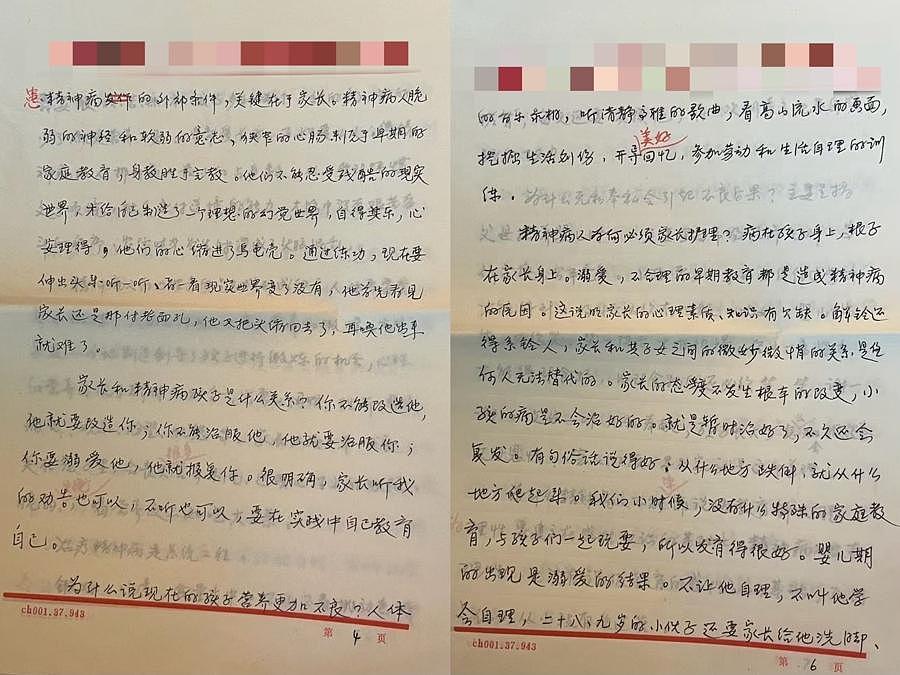 患精神病的外部条件，关键在于家长。精神病人脆
弱的神经和软弱的意志、狭窄的心肠来源于早期的
家庭教育，身教胜于言教。他们不能忍受残酷的现实
世界，才给自己制造了一个理想的幻觉世界，自得其乐，心
安理得，他们的心缩进了乌龟壳。通过练功，现在要
伸出头来听一听、看一看现实世界变了没有，他首先看见
家长还是那付老面孔，他又把头缩回去了，再唤他出来
就难了。
家长和精神病孩子是什么关系？你不能改造他，
他就要改造你；你不能治服他，他就要治服你；
你要溺爱他，他就报复你。很明确，家长听我
的劝告也可以，不听也可以，要在实践中自己教育
自己。
为什么说现在的孩子营养更加不良？人体
ch001.37.943
第 4 页
的音乐，听清静高雅的歌曲，看高山流水的画面，
挖掘生活创伤，开导美好回忆，参加劳动和生活自理的训
练。
精神病人为何必须家长护理？病在孩子身上，根子
在家长身上。溺爱，不合理的早期教育都是造成精神病
的原因。这说明家长的心理素质、知识有欠缺。解铃还
得系铃人，家长和其子女之间的微妙微情的关系，是任
何人无法替代的。家长的态度不发生根本的改变，小
孩的病是不会治好的。就是暂时治好了，不久还会
复发。有句俗话说得好：从什么地方跌倒，就从什么
地方爬起来。我们小时候，没有什么特殊的家庭教
育，与孩子们一起玩耍，所以发育得很好。婴儿期
的出现是溺爱的结果。不让他自理，不叫他学
会自理，二十八、九岁的小伙子还要家长给他洗脚、
ch001.37.943
第 6 页